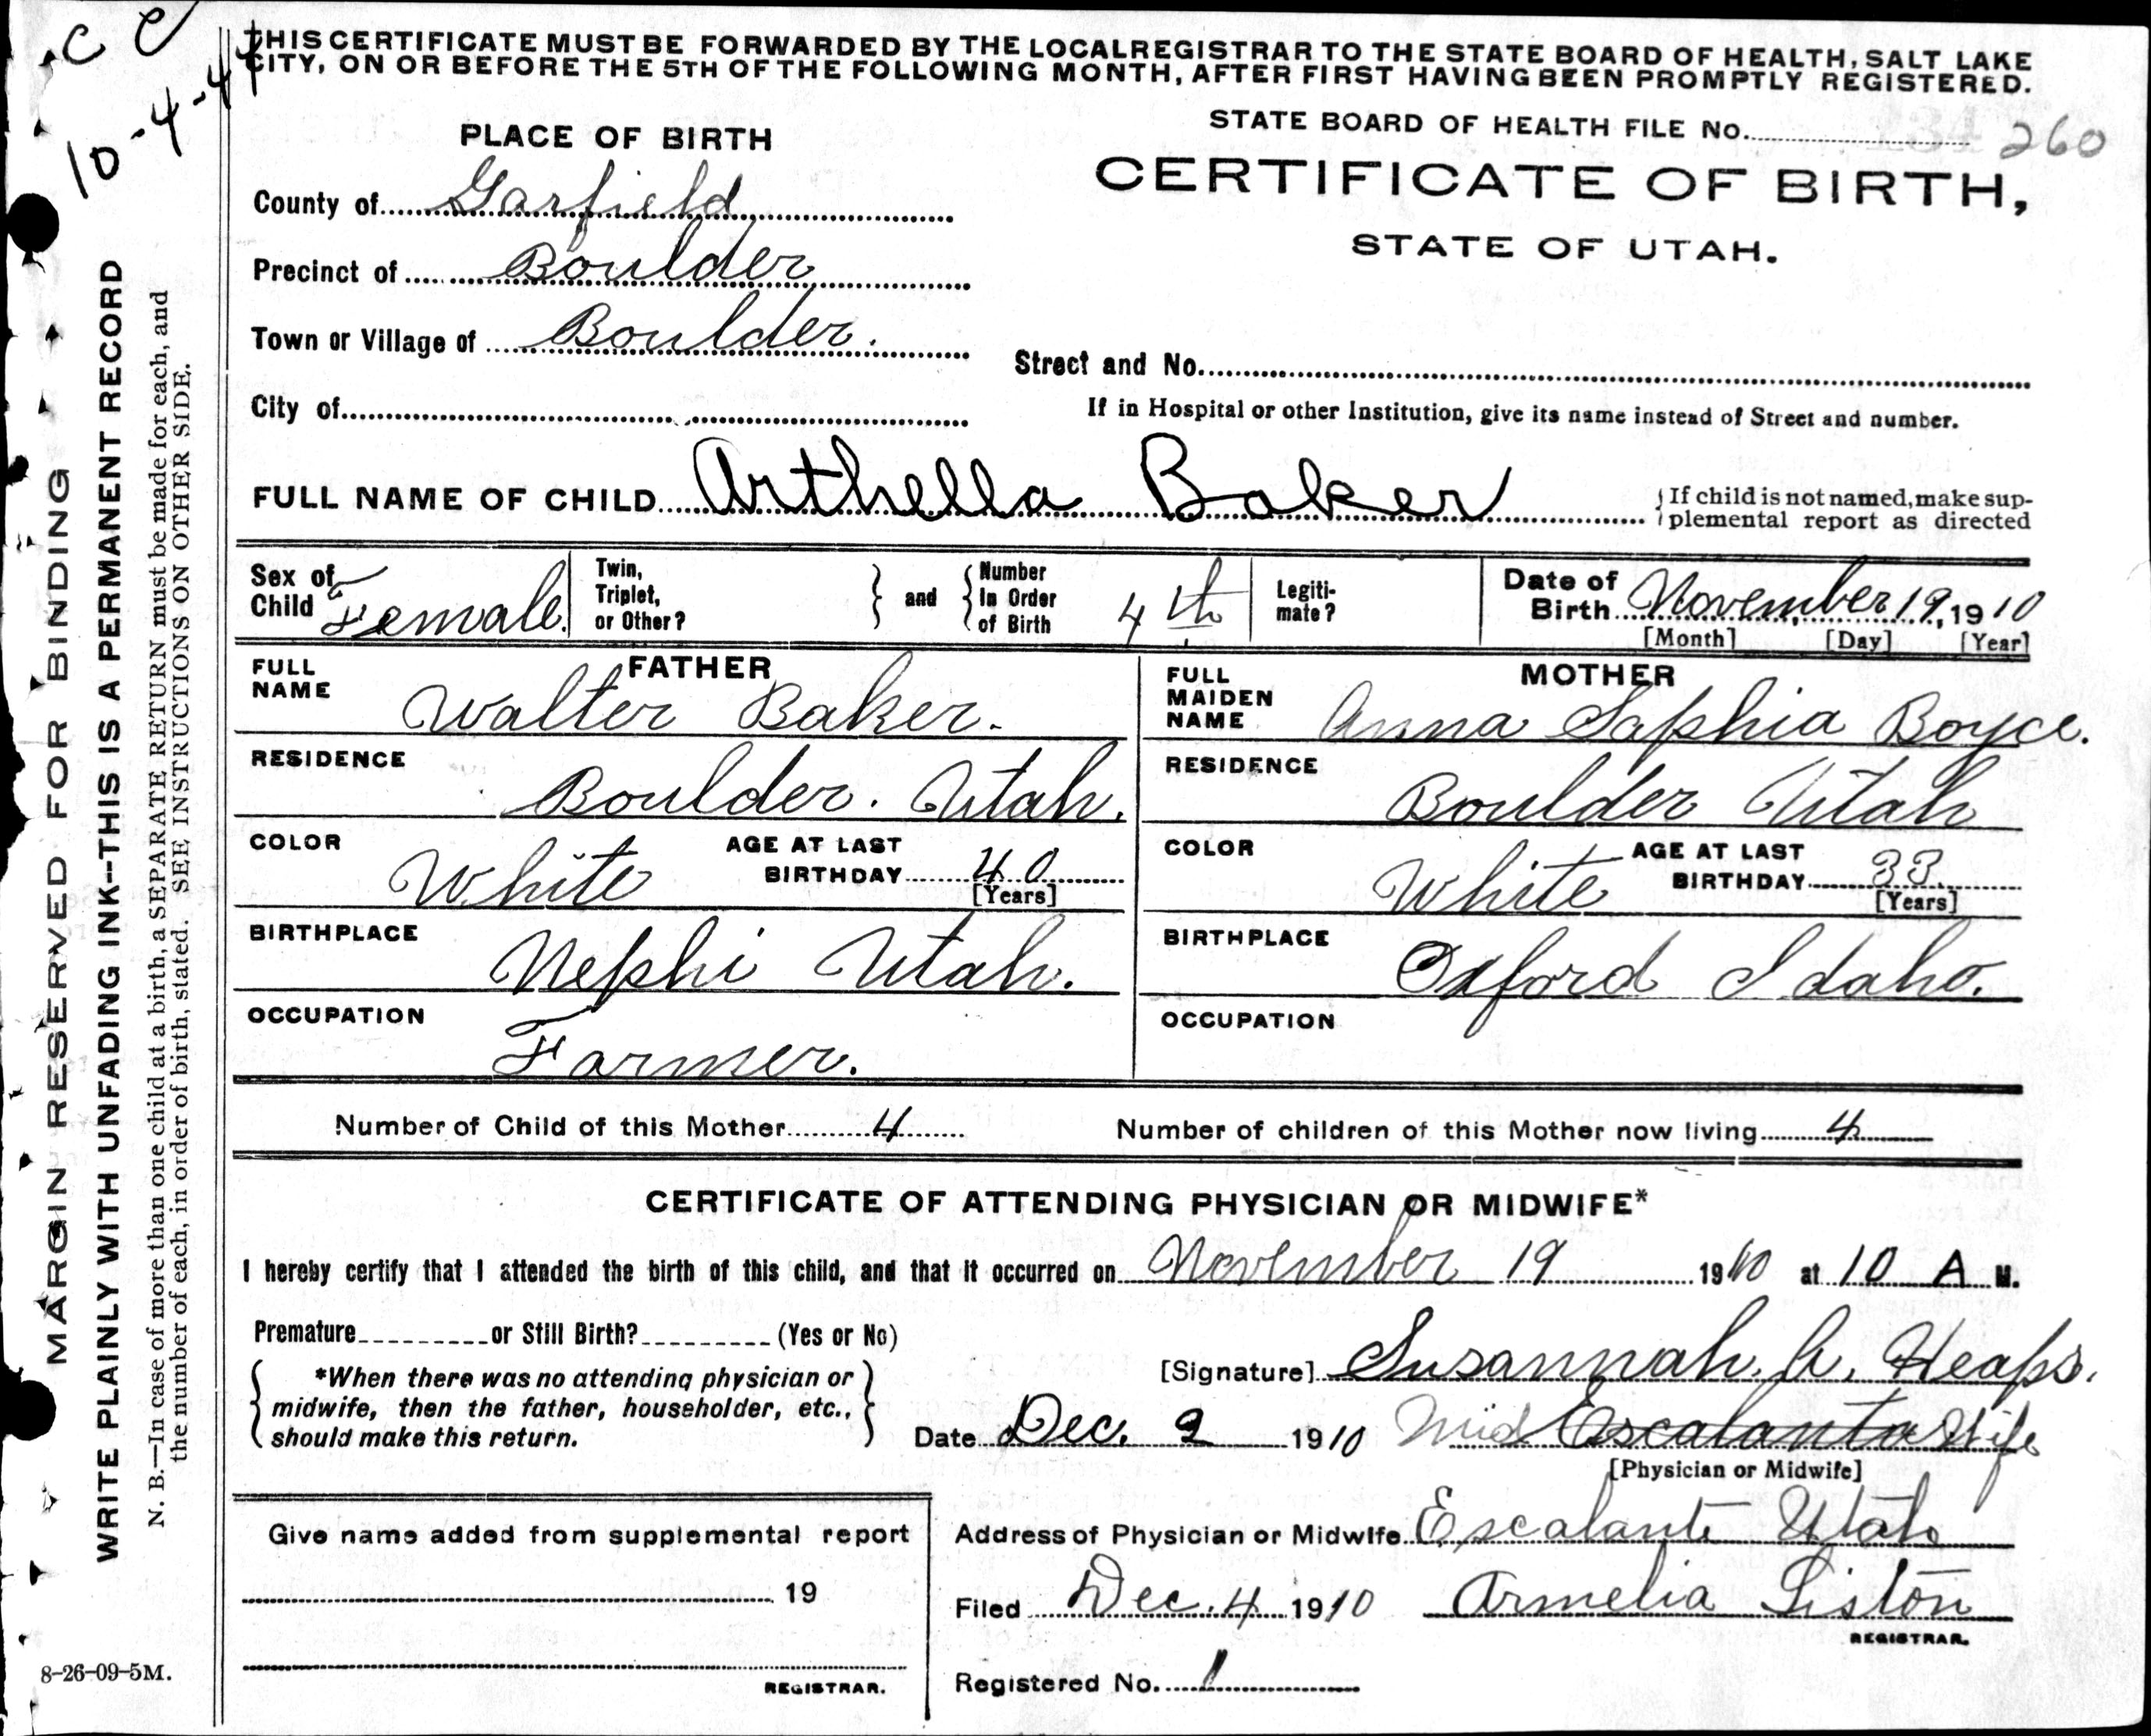 c c
10-4-44
THIS CERTIFICATE MUST BE FORWARDED BY THE LOCAL REGISTRAR TO THE STATE BOARD OF HEALTH, SALT LAKE
CITY, ON OR BEFORE THE 5TH OF THE FOLLOWING MONTH, AFTER FIRST HAVING BEEN PROMPTLY REGISTERED.
STATE BOARD OF HEALTH FILE No. 260
PLACE OF BIRTH
CERTIFICATE OF BIRTH,
STATE OF UTAH.
County of Garfield
Precinct of Boulder
Town or Village of Boulder.
Street and No.
City of
If in Hospital or other Institution, give its name instead of Street and number.
FULL NAME OF CHILD Arthella Baker
{If child is not named, make sup-
plemental report as directed
Sex of Child Female.
Twin, Triplet, or Other?
} and {
Number In Order of Birth 4th
Legiti-mate?
Date of Birth November 19, 1910
[Month] [Day] [Year]
FATHER
FULL NAME Walter Baker.
RESIDENCE Boulder. Utah.
COLOR White
AGE AT LAST BIRTHDAY 40
[Years]
BIRTHPLACE Nephi Utah.
OCCUPATION Farmer.
MOTHER
FULL MAIDEN NAME Anna Saphia Boyce.
RESIDENCE Boulder Utah
COLOR White
AGE AT LAST BIRTHDAY 33.
[Years]
BIRTHPLACE Oxford Idaho.
OCCUPATION
Number of Child of this Mother 4
Number of children of this Mother now living 4
CERTIFICATE OF ATTENDING PHYSICIAN OR MIDWIFE*
I hereby certify that I attended the birth of this child, and that it occurred on November 19 1910 at 10 A M.
Premature or Still Birth? (Yes or No)
{ *When there was no attending physician or
midwife, then the father, householder, etc.,
should make this return. }
[Signature] Susannah. A. Heaps.
Date Dec. 2 1910
Mid Escalanta Wife
[Physician or Midwife]
Address of Physician or Midwife Escalante Utah
Filed Dec. 4 1910 Armelia Liston
REGISTRAR.
Registered No. 1
Give name added from supplemental report
19
REGISTRAR.
8-26-09-5M.
MARGIN RESERVED FOR BINDING
WRITE PLAINLY WITH UNFADING INK--THIS IS A PERMANENT RECORD
N. B.—In case of more than one child at a birth, a SEPARATE RETURN must be made for each, and
the number of each, in order of birth, stated. SEE INSTRUCTIONS ON OTHER SIDE.